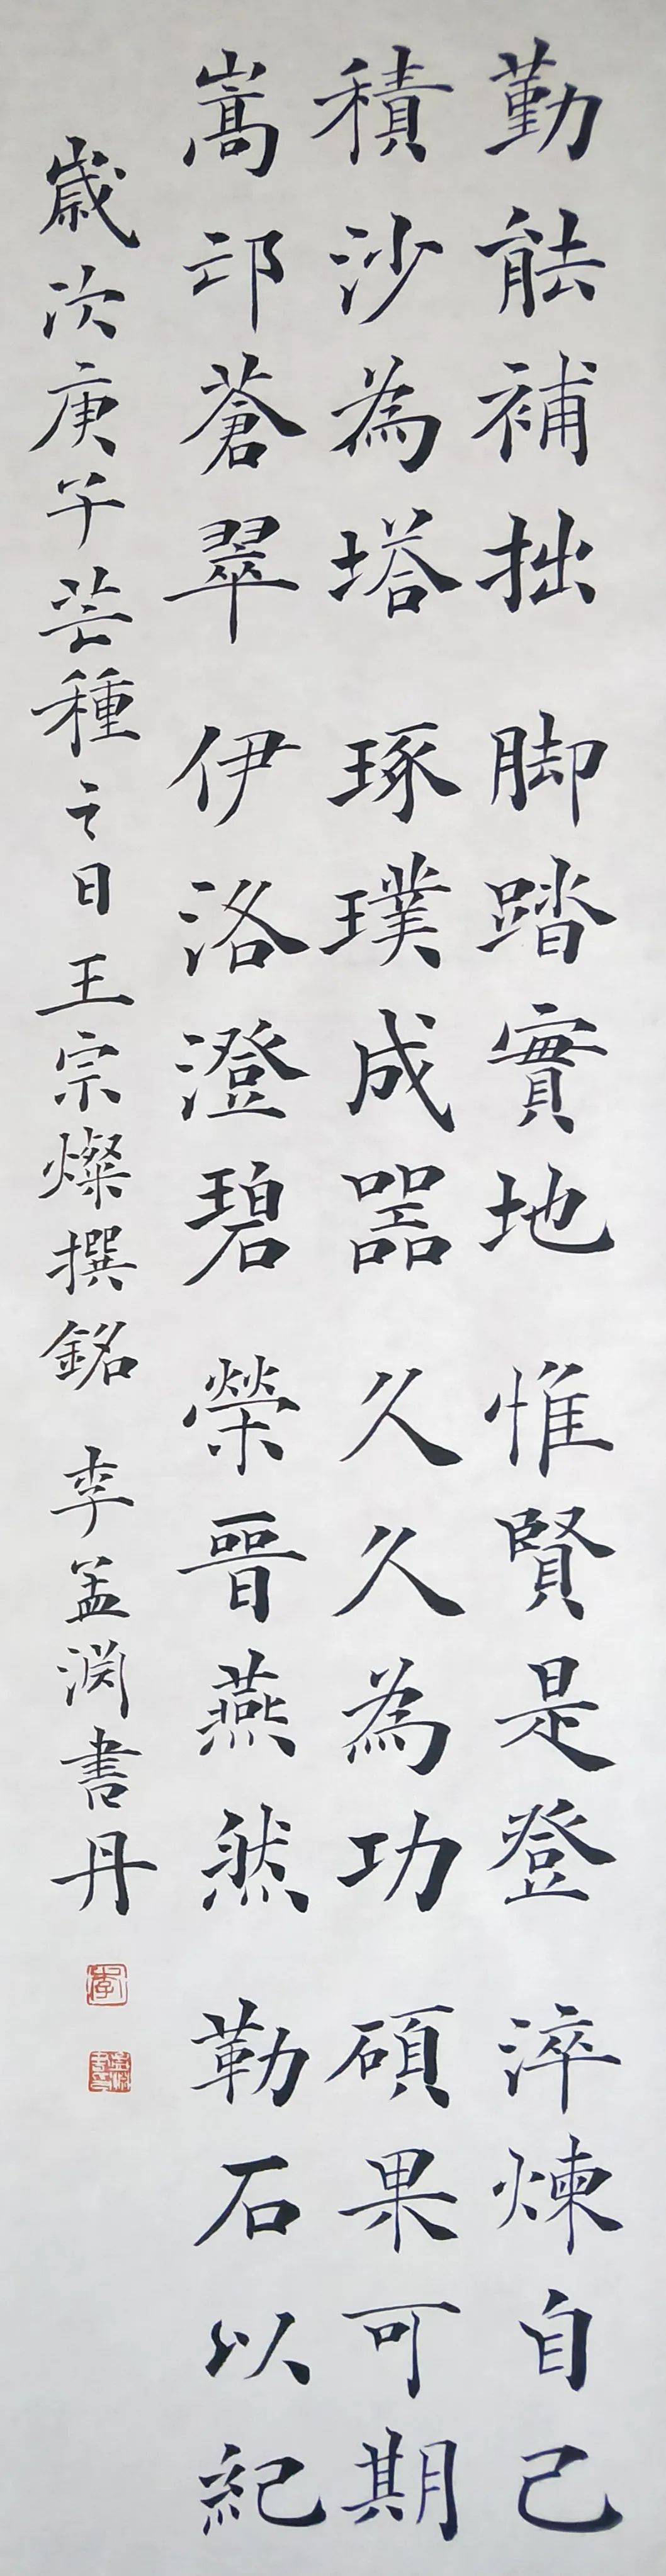 勤能補拙 脚踏實地 惟賢是登 淬煉自己
積沙為塔 琢璞成器 久久為功 碩果可期
嵩邙蒼翠 伊洛澄碧 榮晉燕然 勒石以紀
歲次庚子芒種之日 王宗燦撰銘 李孟渊書丹